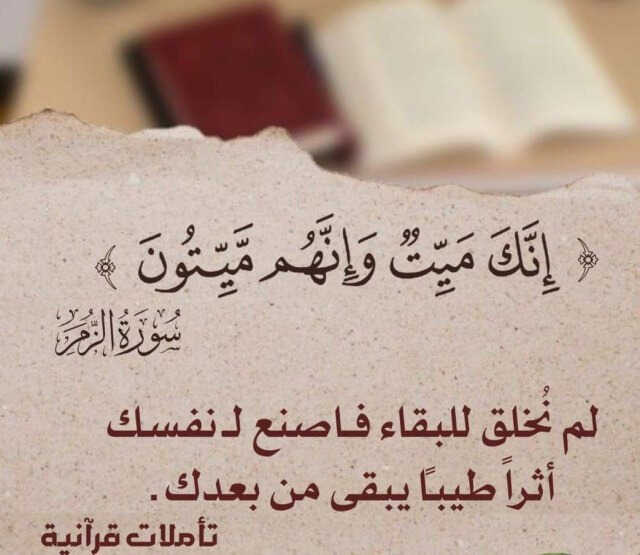 ﴿ إِنَّكَ مَيِّتٌ وَإِنَّهُم مَّيِّتُونَ ﴾
سُورَةُ الزُّمَرِ
لم نُخلق للبقاء فاصنع لـ نفسك
أثراً طيباً يبقى من بعدك.
تأملات قرآنية